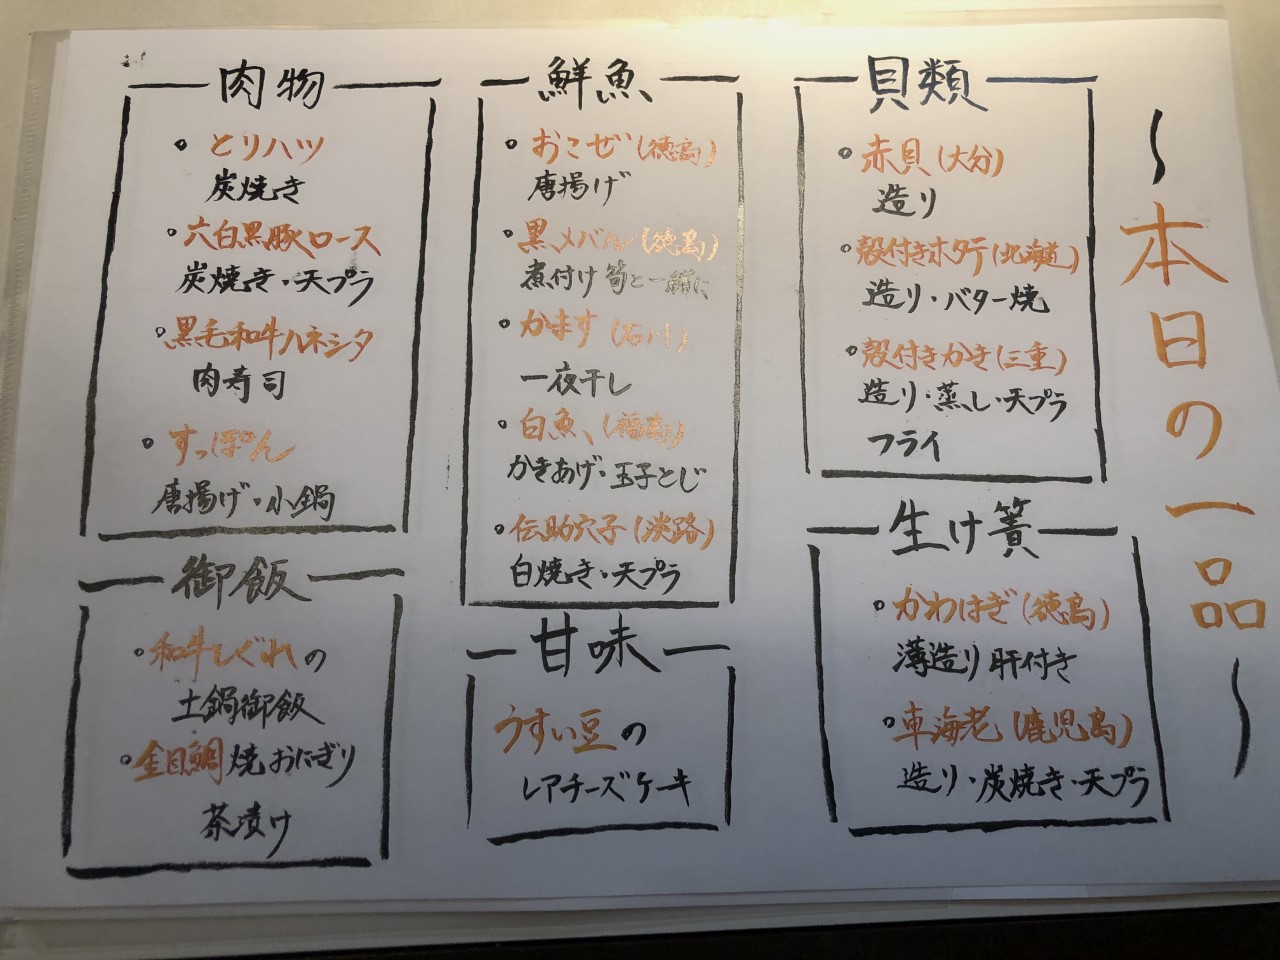 ～本日の一品～
貝類
・赤貝(大分)
造り
・殻付きホタテ(北海道)
造り・バター焼
・殻付きかき(三重)
造り・蒸し・天プラ
フライ
生け簀
・かわはぎ(徳島)
薄造り肝付き
・車海老(鹿児島)
造り・炭焼き・天プラ
鮮魚
・おこぜ(徳島)
唐揚げ
・黒メバル(徳島)
煮付け筍と一緒に
・かます(石川)
一夜干し
・白魚(福島)
かきあげ・玉子とじ
・伝助穴子(淡路)
白焼き・天プラ
甘味
うすい豆の
レアチーズケーキ
肉物
・とりハツ
炭焼き
・六白黒豚ロース
炭焼き・天プラ
・黒毛和牛ハネシタ
肉寿司
・すっぽん
唐揚げ・小鍋
御飯
・和牛しぐれの
土鍋御飯
・金目鯛焼おにぎり
茶漬け